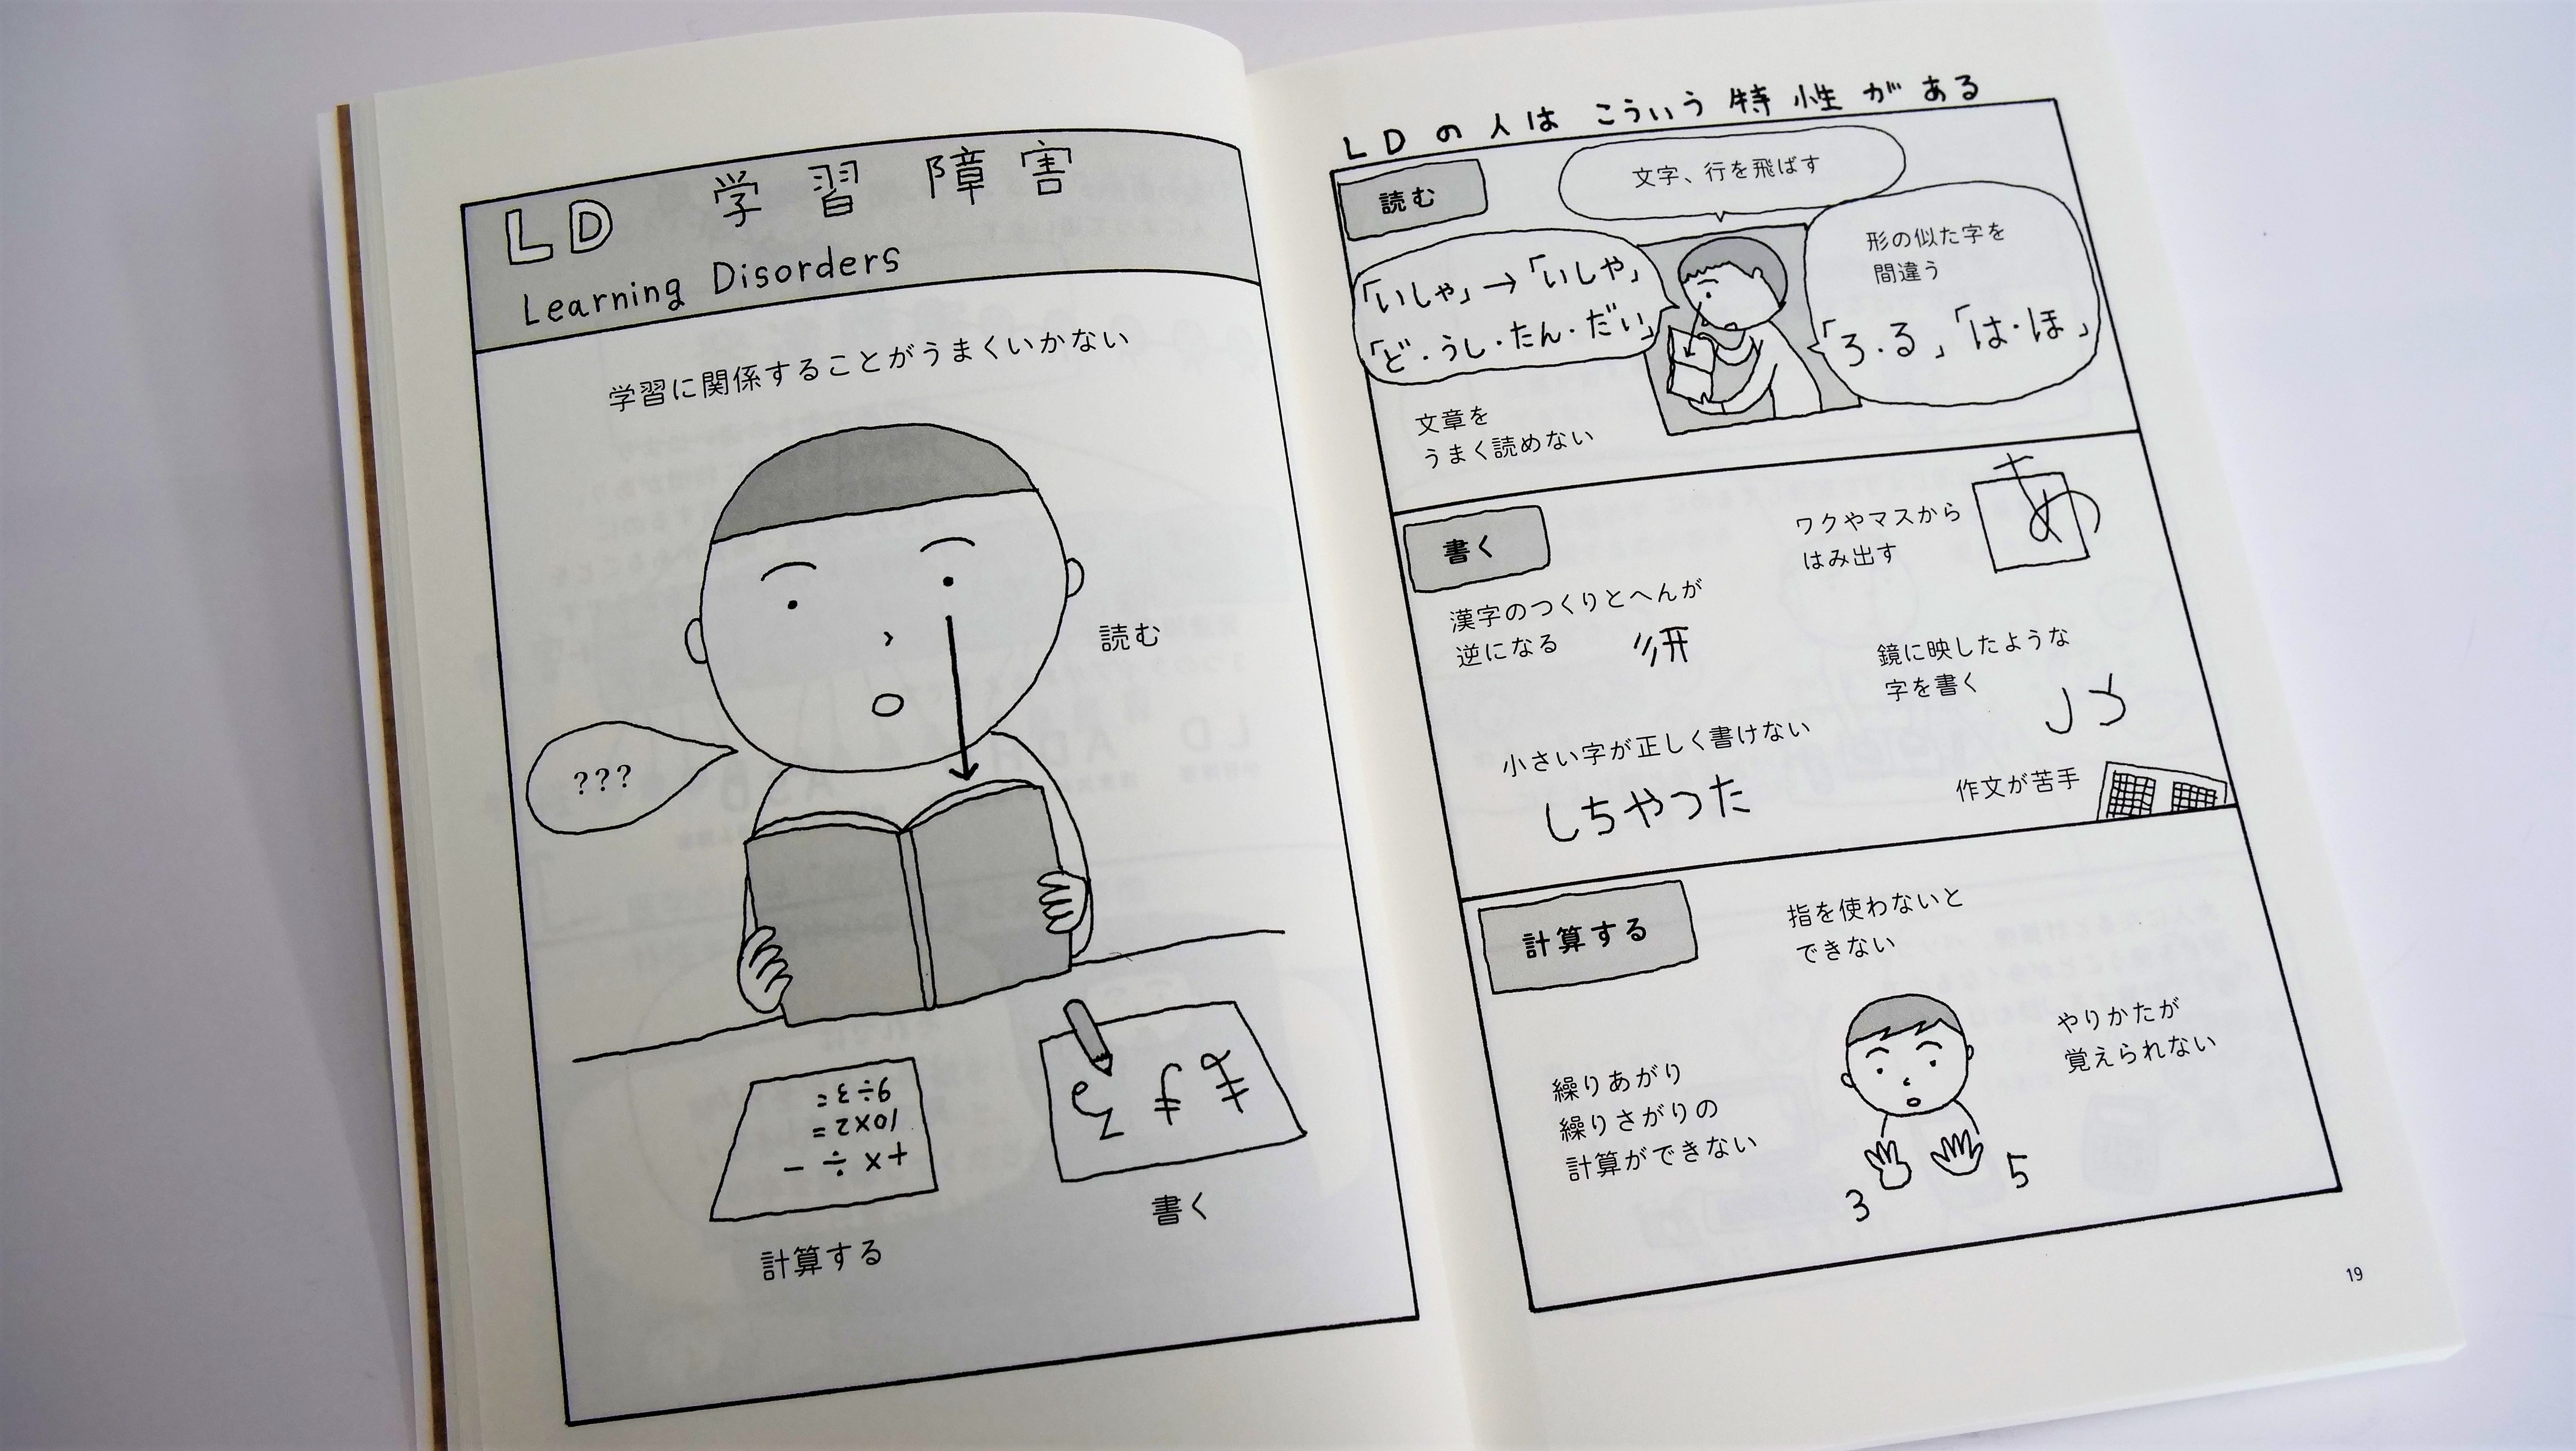 LD 学習障害
Learning Disorders
学習に関係することがうまくいかない
読む
???
9÷3=
10×2=
+×÷-
計算する
書く
LDの人はこういう特性がある
読む
文字、行を飛ばす
「いしゃ」→「いしや」
「ど・うし・たん・だい」
形の似た字を
間違う
「ろ・る」「は・ほ」
文章を
うまく読めない
書く
ワクやマスから
はみ出す
あ
漢字のつくりとへんが
逆になる
鏡に映したような
字を書く
小さい字が正しく書けない
しちやつた
作文が苦手
計算する
指を使わないと
できない
繰りあがり
繰りさがりの
計算ができない
やりかたが
覚えられない
3
5
19